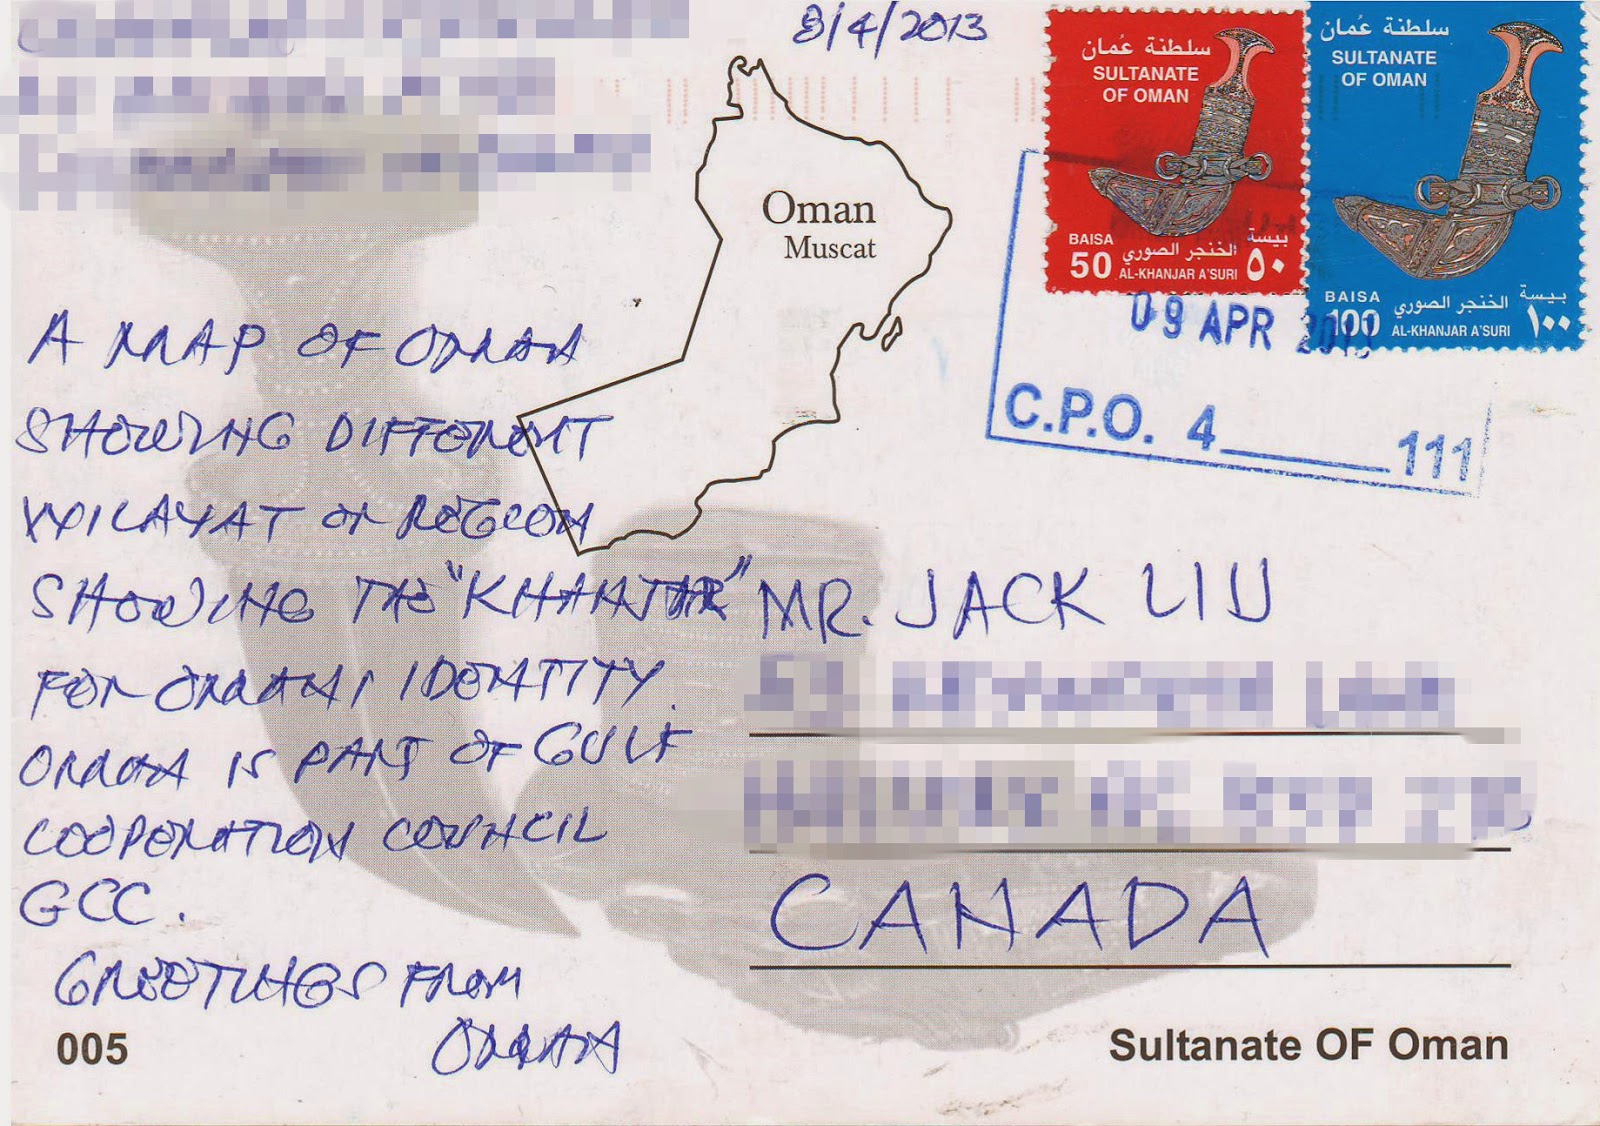 8/4/2013
سلطنة عُمان
SULTANATE
OF OMAN
BAISA بيسة
50 الخنجر الصوري ٥٠
AL-KHANJAR A'SURI
سلطنة عُمان
SULTANATE
OF OMAN
BAISA بيسة
100 الخنجر الصوري ١٠٠
AL-KHANJAR A'SURI
09 APR 2013
C.P.O. 4 111
Oman
Muscat
A MAP OF OMAN
SHOWING DIFFERENT
WILAYAT OR REGION
SHOWING THE "KHANJAR"
FOR OMANI IDENTITY.
OMAN IS PART OF GULF
COOPERATION COUNCIL
GCC.
GREETINGS FROM
OMAN
MR. JACK LIU
CANADA
005
Sultanate OF Oman